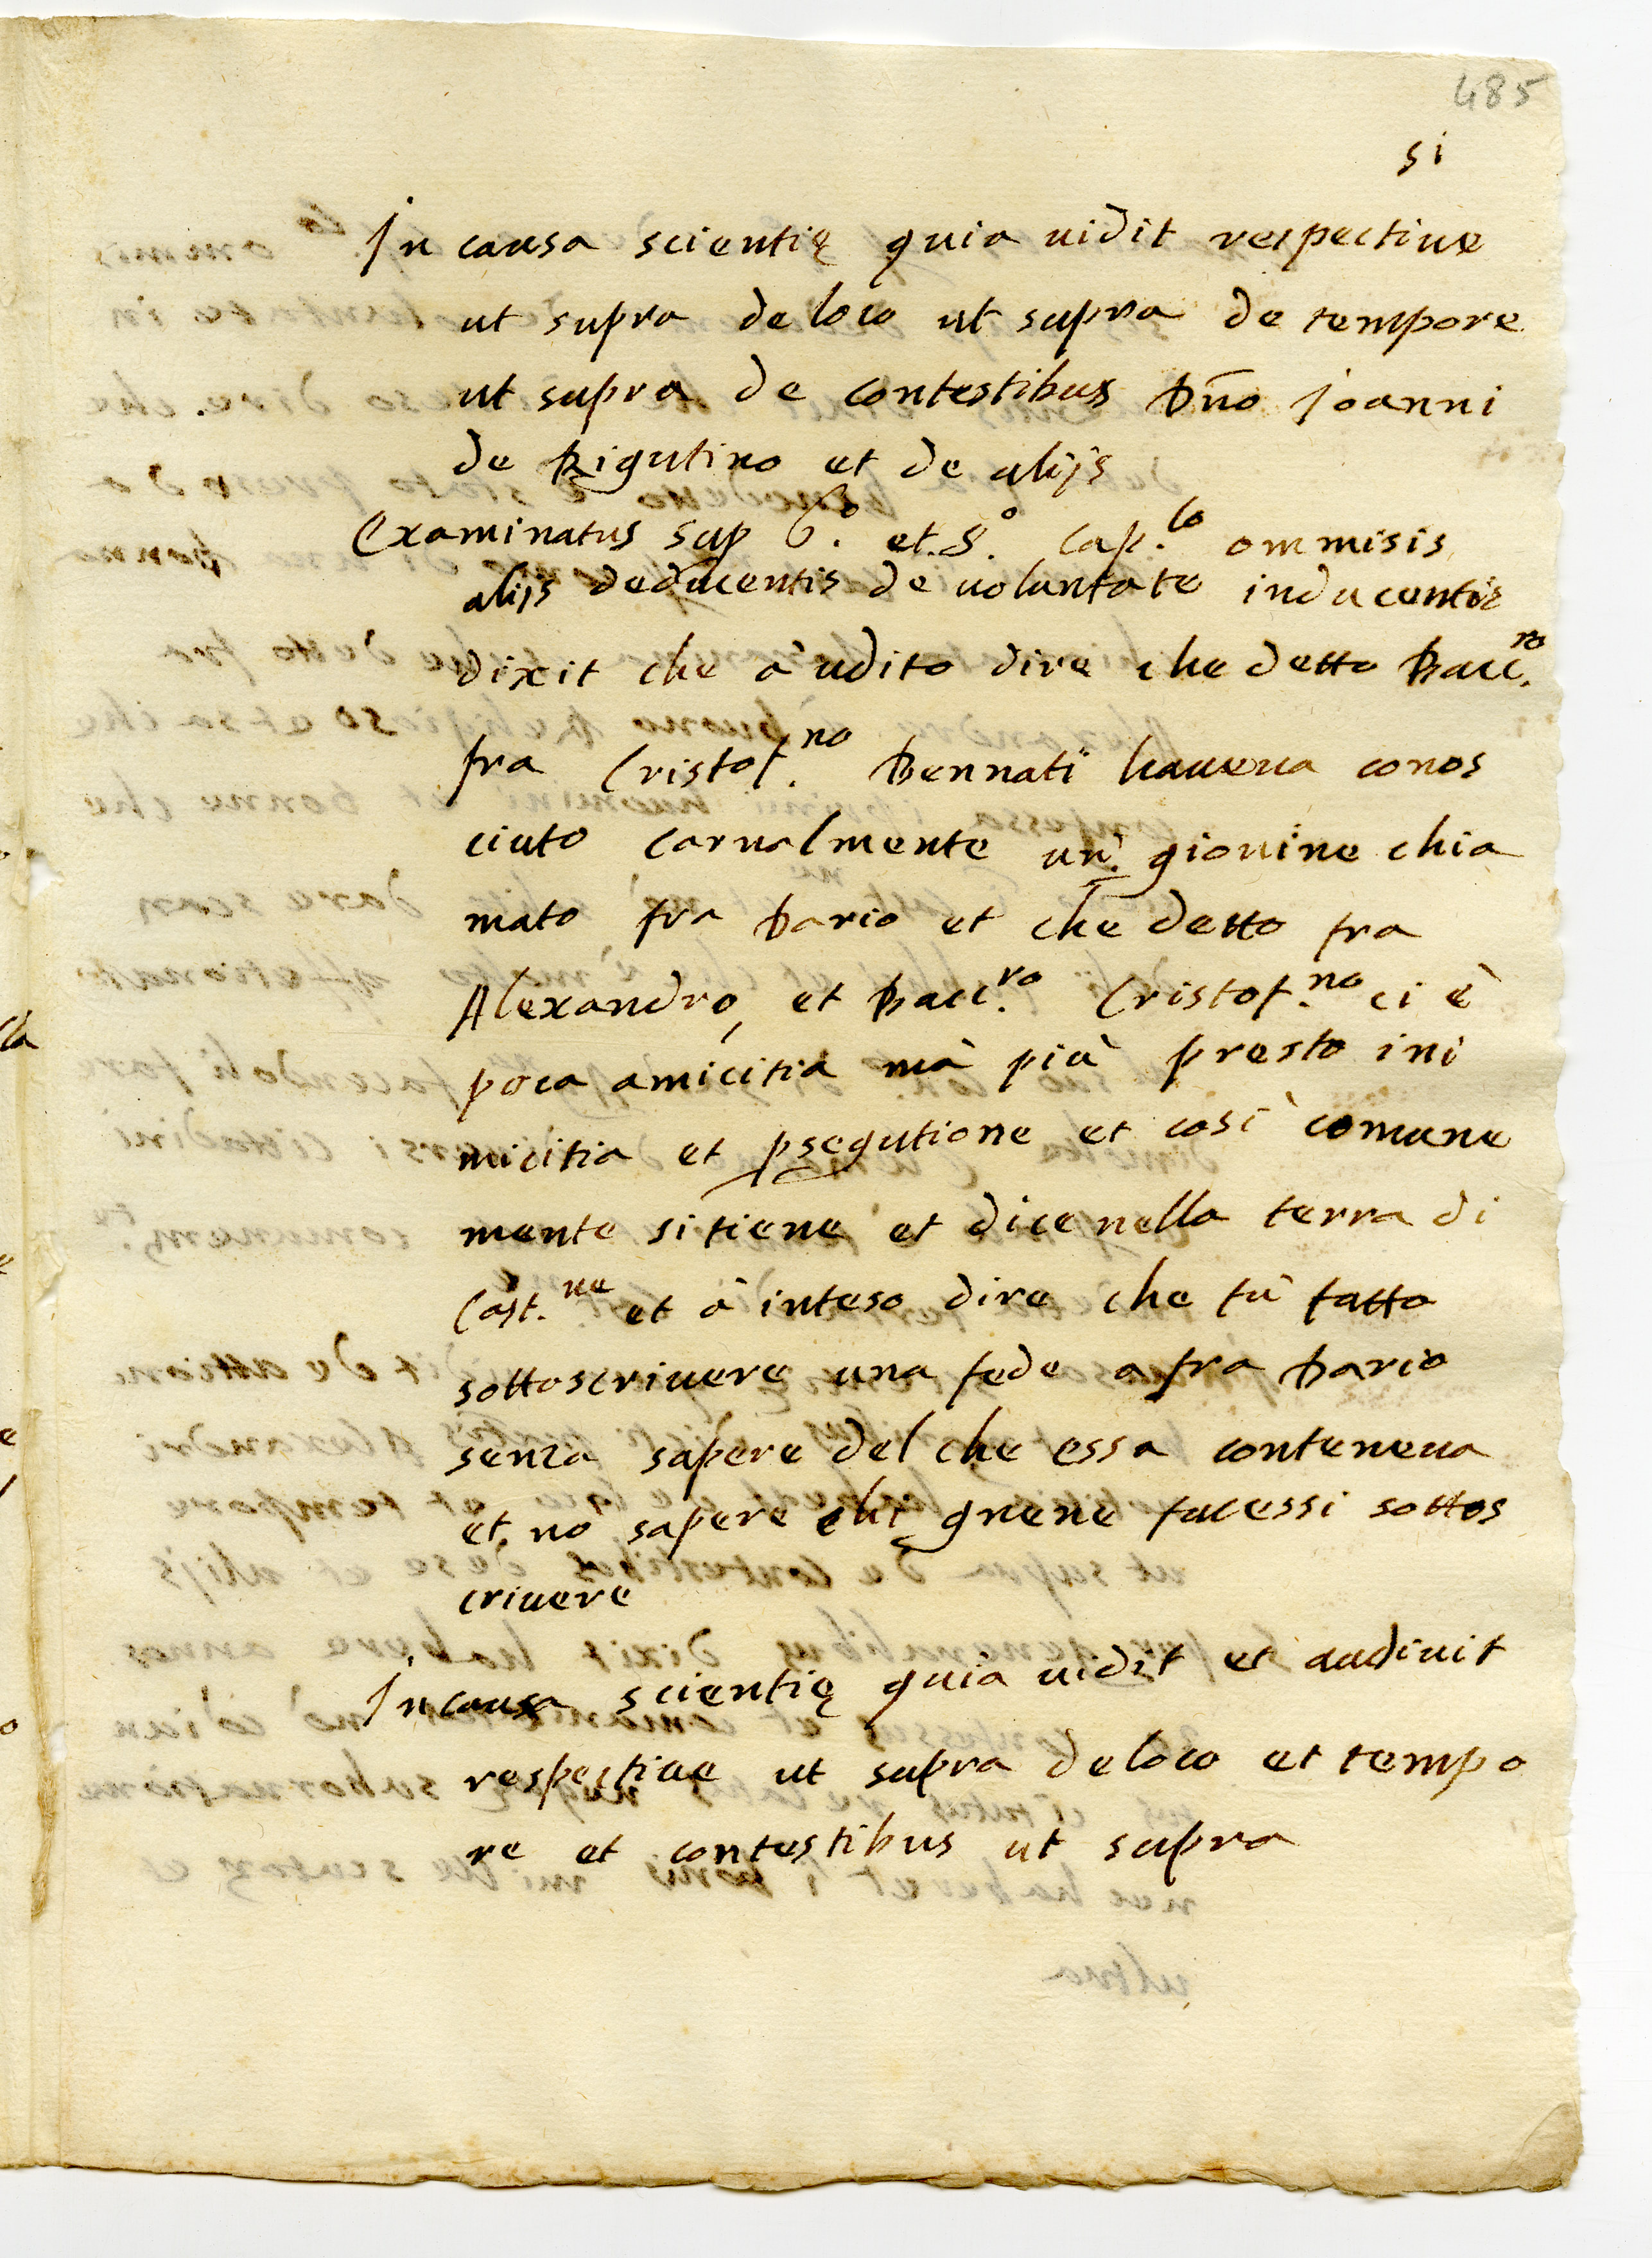 485
si
In causa scientię quia uidit respectiue
ut supra de loco ut supra de tempore
ut supra de contestibus Dño Joanni
de Rigutino et de alijs
Examinatus sup 6.º et 8.º Cap.lo ommisis
alijs deducentis de uoluntate inducentis
dixit che à udito dire che detto Bacc.ro
fra Cristof.no Bennati haueua conos
ciuto carnalmente un giouine chia
mato fra Dario et che detto fra
Alexandro, et Bacc.ro Cristof.no ci è
poca amicitia mà più presto ini
micitia et psegutione et così comune
mente si tiene et dice nella terra di
Cast.ne et à inteso dire che fù fatto
sottoscriuere una fede a fra Dario
senza sapere del che essa conteneua
et nõ sapere chi gnene facessi sottos
criuere
In causa scientię quia uidit et audiuit
respectiue ut supra de loco et tempo
re et contestibus ut supra